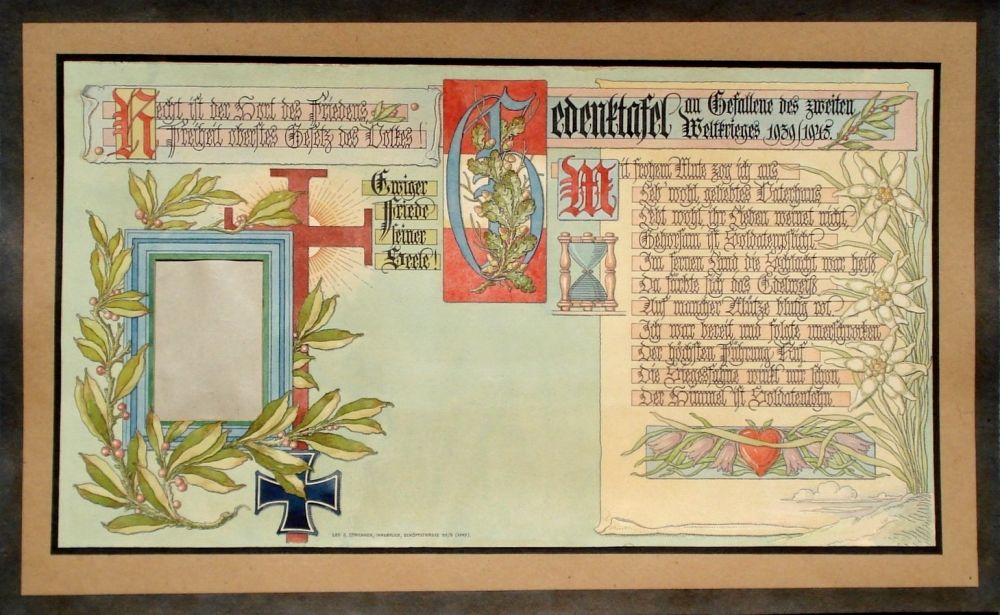 Recht ist der Hort des Friedens
Freiheit oberstes Gesetz des Volkes!
Ewiger
Friede
seiner
Seele!
Gedenktafel an Gefallene des zweiten
Weltkrieges 1939/1945.
Mit frohem Mute zog ich aus,
Leb' wohl geliebtes Vaterhaus
Lebt wohl, ihr Lieben weinet nicht,
Gehorsam ist Soldatenpflicht.
Im fernen Land die Schlacht war heiß
Da färbte sich das Edelweiß
Auf mancher Mütze blutig rot.
Ich war bereit und folgte unerschrocken
Der höchsten Führung Ruf
Die Siegesfahne winkt mir schon,
Der Himmel ist Soldatenlohn.
INNSBRUCK,